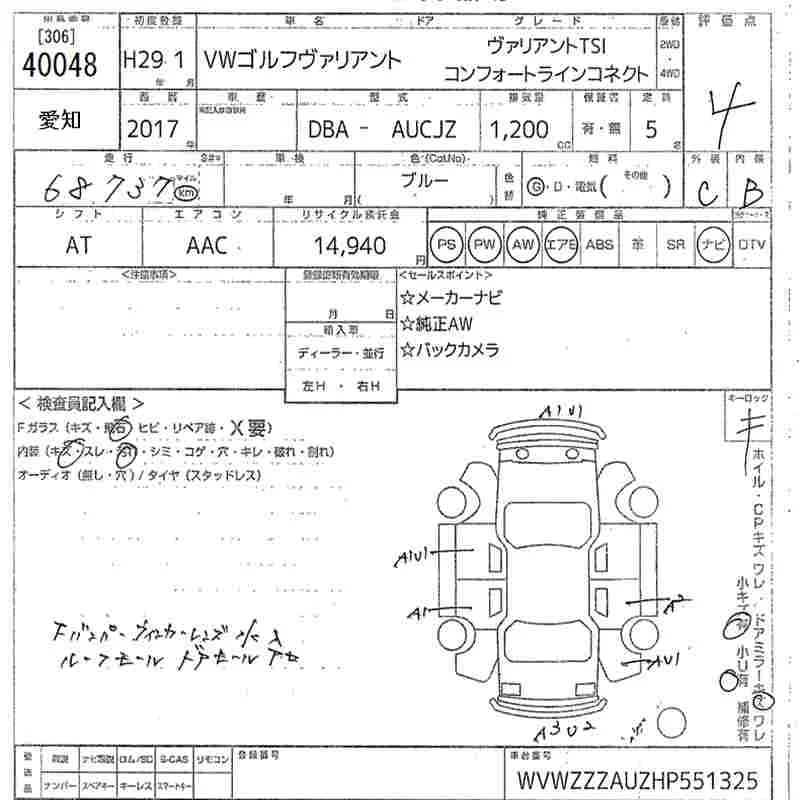 [306]
40048
初度登録
車名
ドア
グレード
評価点
H29 1
年 月
VWゴルフヴァリアント
ヴァリアントTSI
コンフォートラインコネクト
2WD
4WD
4
愛知
西暦
車歴
型式
排気量
保証書
定員
2017
年
DBA - AUCJZ
1,200
CC
有・無
5
名
走行
車検
色(Col.No)
燃料
外装
内装
68737
マイル
km
年 月
ブルー
色替
G・D・電気( その他 )
C
B
シフト
エアコン
リサイクル預託金
純正装備品
AT
AAC
14,940
円
PS
PW
AW
エアB
ABS
革
SR
ナビ
DTV
<注意事項>
<セールスポイント>
月 日
輸入車
ディーラー・並行
左H ・ 右H
☆メーカーナビ
☆純正AW
☆バックカメラ
< 検査員記入欄 >
Fガラス(キズ・飛石 ヒビ・リペア跡・X要)
内装(キズ・スレ・汚れ・シミ・コゲ・穴・キレ・破れ・割れ)
オーディオ(無し・穴)/タイヤ(スタッドレス)
キーロック
キ
ホイル・CPキズワレ・ドアミラーキズワレ
小キズ有 小U有 補修有
A1U1
A1U1
A1
A2
AU1
A3U2
ルーフモール ドアモール
登録番号
車台番号
取説
ナビ取説
ロム/SD
B-CAS
リモコン
ナンバー
スペアキー
キーレス
スマートキー
WVWZZZAUZHP551325